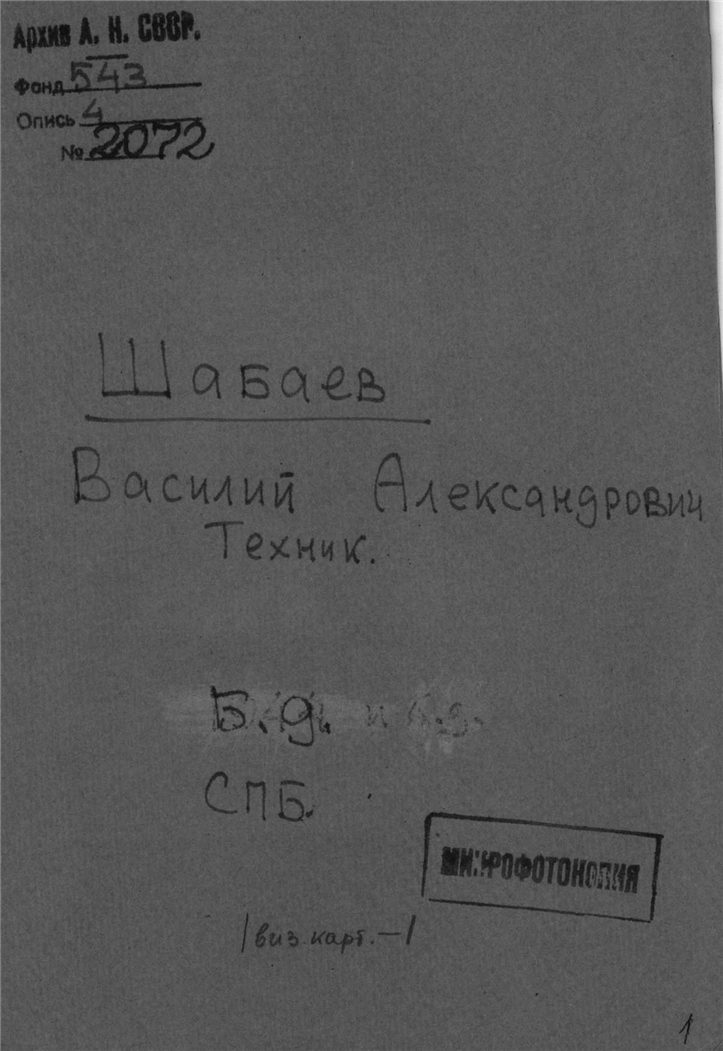 Архив А. Н. СССР.
Фонд 543
Опись 4
№ 2072
Шабаев
Василий Александрович
Техник.
Б.д.
СПБ.
МИКРОФОТОКОПИЯ
/виз. карт.—/
1